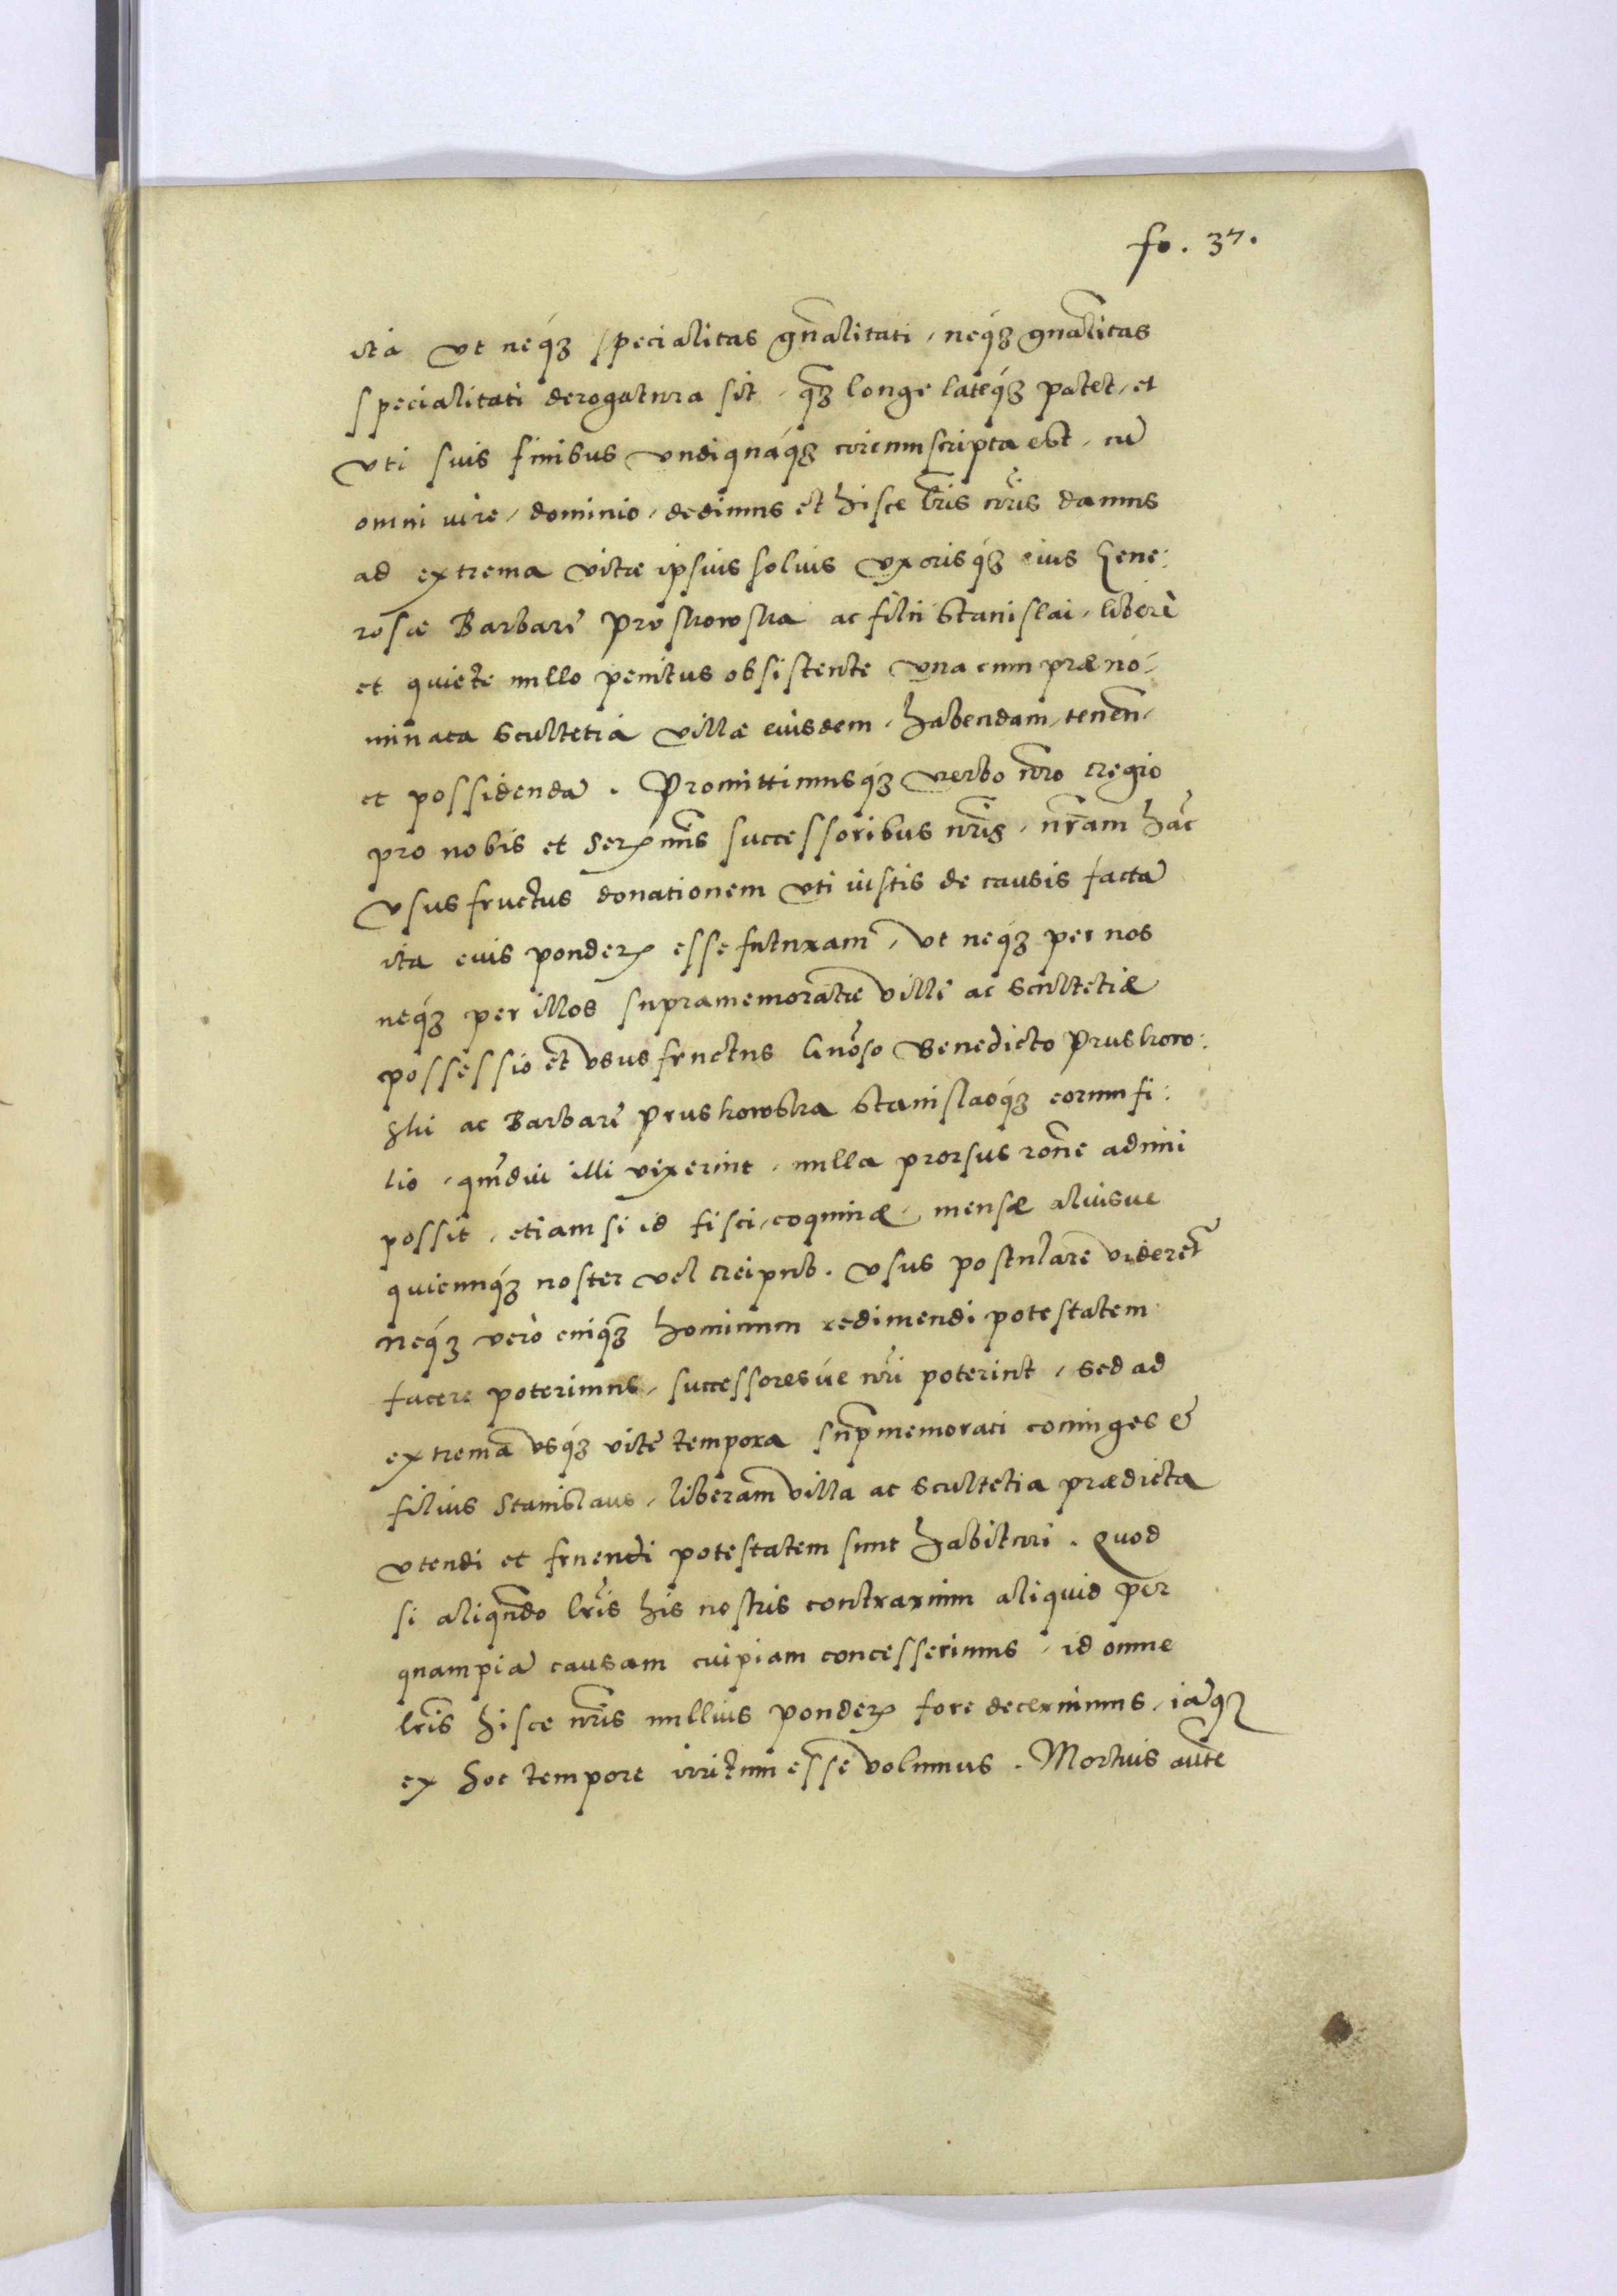 fo. 37.
ita ut neq́ȝ specialitas gñalitati, neq́ȝ gñalitas
specialitati derogatura sit, qȝ̃ longe lateq́ȝ patet, et
vti suis finibus vndiquáqȝ circumscripta est, cũ
omni iure, dominio, dedimus et hisce lr̃is nr̃is damus
ad extrema vitæ ipsius solius vxorisq́ȝ eius Gene:
rosæ Barbarę Pruskowska ac filii Stanislai, liberè
et quiete nullo penitus obsistente vna cum præno:
minata Scultetia villæ eiusdem, habendam, tenen̄,
et possidendã. Promittimusq́ȝ verbo nr̃o regio
pro nobis et Ser̃mis successoribus nr̃is, nr̃am hãc
vsusfructus donationem vti iustis de causis factã
ita eius ponder̃ esse futuram, ut neq́ȝ per nos
neq́ȝ per illos supramemoratæ villę ac Scultetiæ
possessio et vsusfructus Gñoso Benedicto Pruskow:
ski ac Barbarę Pruskowska Stanislaoq́ȝ eorum fi:
lio, qm̃diu illi vixerint, nulla prorsus rõne adimi
possit, etiam si id fisci, coquinæ, mensæ aliusue
quicunq́ȝ noster vel reipub. vsus postulare videret̃
Neq́ȝ verò cuiqȝ̃ hominum redimendi potestatem
facere poterimus, successoresúe nr̃i poterint, sed ad
extrema vsq́ȝ vitę tempora sup̃memorati coniuges &
filius Stanislaus, liberam villa ac Scultetia prædicta
vtendi et fruendi potestatem sunt habituri. Quod
si aliqñdo lr̃is his nostris contrarium aliquid per
quampiã causam cuipiam concesserimus, id omne
lr̃is hisce nr̃is nullius ponder̃ fore decernimus, iãqȝ
ex hoc tempore irritum esse volumus. Mortuis autẽ